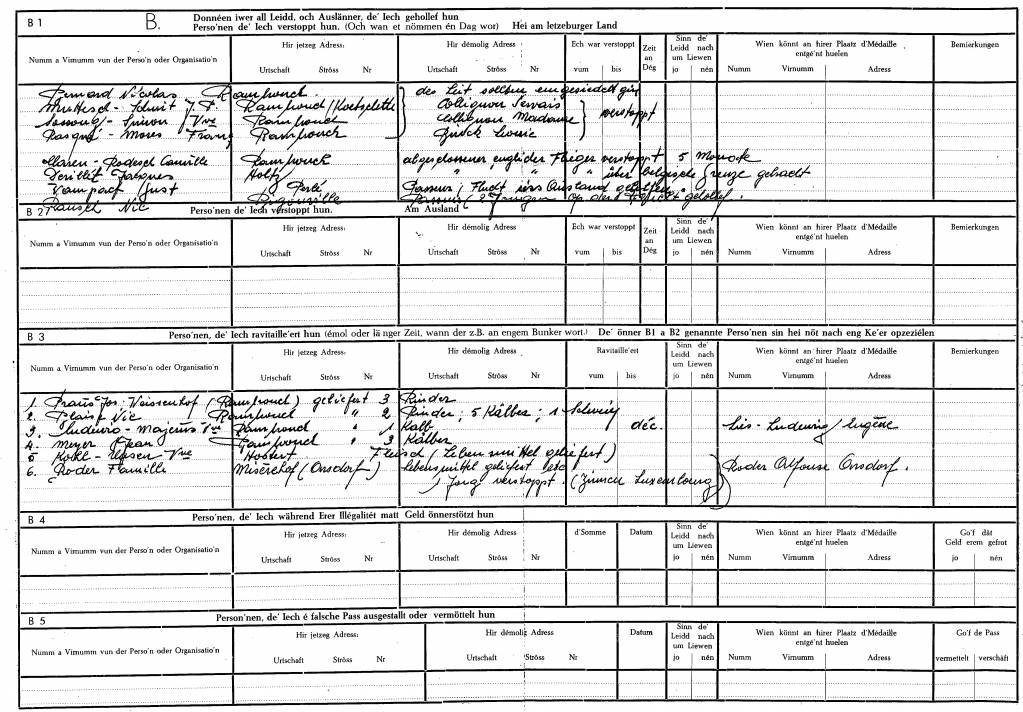 B 1
B.
Donnéen iwer all Leidd, och Auslänner, de' Iech gehollef hun
Perso'nen de' Iech verstoppt hun. (Och wan et nömmen én Dag wor) Hei am letzeburger Land
Numm a Virnumm vun der Perso'n oder Organisatio'n
Hir jetzeg Adress:
Urtschaft Ströss Nr
Hir démolig Adress
Urtschaft Ströss Nr
Ech war verstoppt
vum bis
Zeit an Dég
Sinn de' Leidd nach um Liewen
jo nén
Wien könnt an hirer Plaatz d'Médaille entgé'nt huelen
Numm Virnumm Adress
Bemierkungen
Bernard Nicolas Rambrouch
des Leit sollten emgesiedelt gin
Schmit Rambrouch/Koetschette Colignon Servais
Simon Vve Rambrouch Colignon Madame verstoppt
Mores Franz Rambrouch Léonie
Claren - Rodesch Camille Rambrouch abgeschossener englicher Flieger verstoppt 5 Monate
Jacques Holtz " " " über belgische Grenze gebracht
Kampach Just Perlé Passeur / Flucht ins Ausland geholfen
Rausch Nic Bigonville Passeur
B 2
Perso'nen de' Iech verstoppt hun. Am Ausland
Numm a Virnumm vun der Perso'n oder Organisatio'n
Hir jetzeg Adress:
Urtschaft Ströss Nr
Hir démolig Adress
Urtschaft Ströss Nr
Ech war verstoppt
vum bis
Zeit an Dég
Sinn de' Leidd nach um Liewen
jo nén
Wien könnt an hirer Plaatz d'Médaille entgé'nt huelen
Numm Virnumm Adress
Bemierkungen
B 3
Perso'nen, de' Iech ravitaille'ert hun (émol oder länger Zeit, wann der z.B. an engem Bunker wort.) De' önner B1 a B2 genannte Perso'nen sin hei nöt nach eng Ke'er opzeziélen
Numm a Virnumm vun der Perso'n oder Organisatio'n
Hir jetzeg Adress:
Urtschaft Ströss Nr
Hir démolig Adress
Urtschaft Ströss Nr
Ravitaille'ert
vum bis
Sinn de' Leidd nach um Liewen
jo nén
Wien könnt an hirer Plaatz d'Médaille entgé'nt huelen
Numm Virnumm Adress
Bemierkungen
1. Jos. Weissenhof (Rambrouch) geliefert 3 Rinder
2. Nic Rambrouch " 2 Rinder; 5 Kälber; 1 Schwein
3. Ludewig - Majerus Vve Rambrouch " 1 Kalb déc. Lis - Ludewig / Eugène
4. Meyer Jean Rambrouch " 3 Kälber
5 Vve Hostert Fleisch (Lebensmittel geliefert)
6. Roder Famille Misèrehof (Onsdorf) Lebensmittel geliefert etc Roder Alfonse Onsdorf.
1 Jong verstoppt. (Zimmer Luxembourg)
B 4
Perso'nen, de' Iech während Erer Illégalitét matt Geld önnerstötzt hun
Numm a Virnumm vun der Perso'n oder Organisatio'n
Hir jetzeg Adress:
Urtschaft Ströss Nr
Hir démolig Adress
Urtschaft Ströss Nr
d'Somme
Datum
Sinn de' Leidd nach um Liewen
jo nén
Wien könnt an hirer Plaatz d'Médaille entgé'nt huelen
Numm Virnumm Adress
Go'f dät Geld erem gefrot
jo nén
B 5
Person'nen, de' Iech é falsche Pass ausgestallt oder vermöttelt hun
Numm a Virnumm vun der Perso'n oder Organisatio'n
Hir jetzeg Adress:
Urtschaft Ströss Nr
Hir démolig Adress
Urtschaft Ströss Nr
Datum
Sinn de' Leidd nach um Liewen
jo nén
Wien könnt an hirer Plaatz d'Médaille entgé'nt huelen
Numm Virnumm Adress
Go'f de Pass
vermettelt verschäft